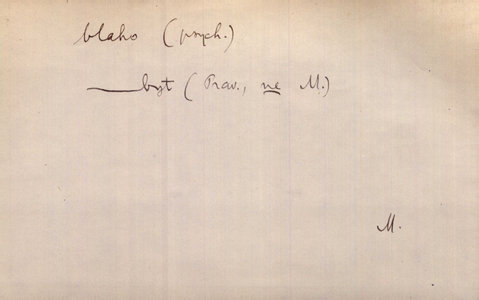 blaho (psych.)
——byt (Prav., ne M.)
M.